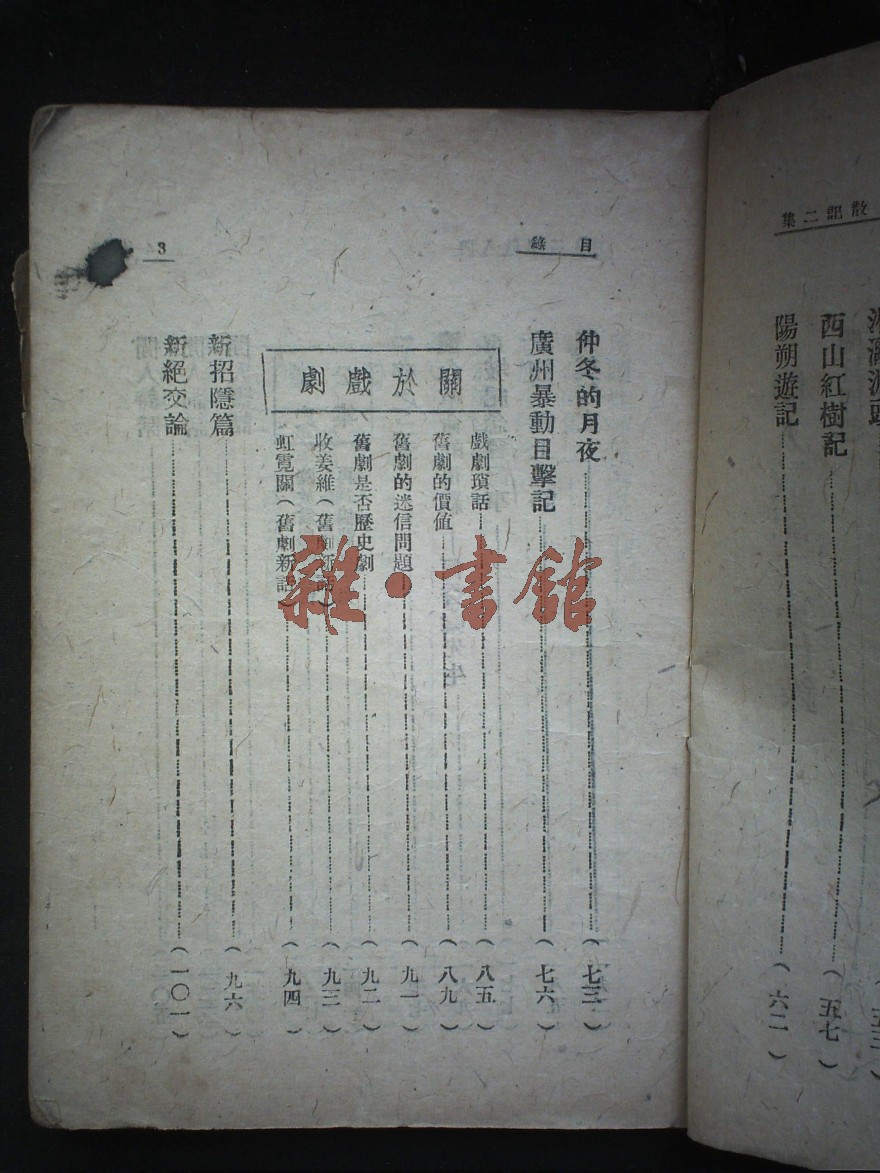 散記二集
西山紅樹記（五七）
陽朔遊記（六二）
目錄
3
仲冬的月夜（七三）
廣州暴動目擊記（七六）
關於戲劇
戲劇瑣話（八五）
舊劇的價值（八九）
舊劇的迷信問題（九一）
舊劇是否歷史劇（九二）
收姜維（舊劇新記）（九三）
虹霓關（舊劇新記）（九四）
新招隱篇（九六）
新絕交論（一〇一）
雜·書館